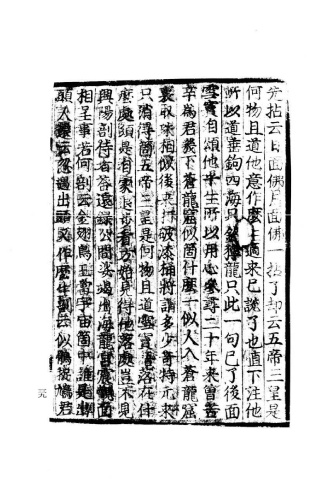 拈云日面佛月面佛一拈了却云五帝三皇是
何物且道他意作麼生適來已說了也直下注他
所以道垂鉤四海只釣獰龍只此一句已了後面
雪竇自頌他平生所以用心參尋二十年來曾苦
辛為君幾下蒼龍窟似箇什麼一似人入蒼龍窟
裏取珠相似後來打破漆桶將謂多少奇特元來
只消得箇五帝三皇是何物且道雪竇語落在什
麼處須是自家退步看方始見得他落處豈不見
興陽剖侍者答遠錄公問娑竭出海乾坤震覿面
相呈事若何剖云金翅鳥王當宇宙箇中誰是出
頭人遠云忽遇出頭又作麼生剖云似鶻捉鳩君